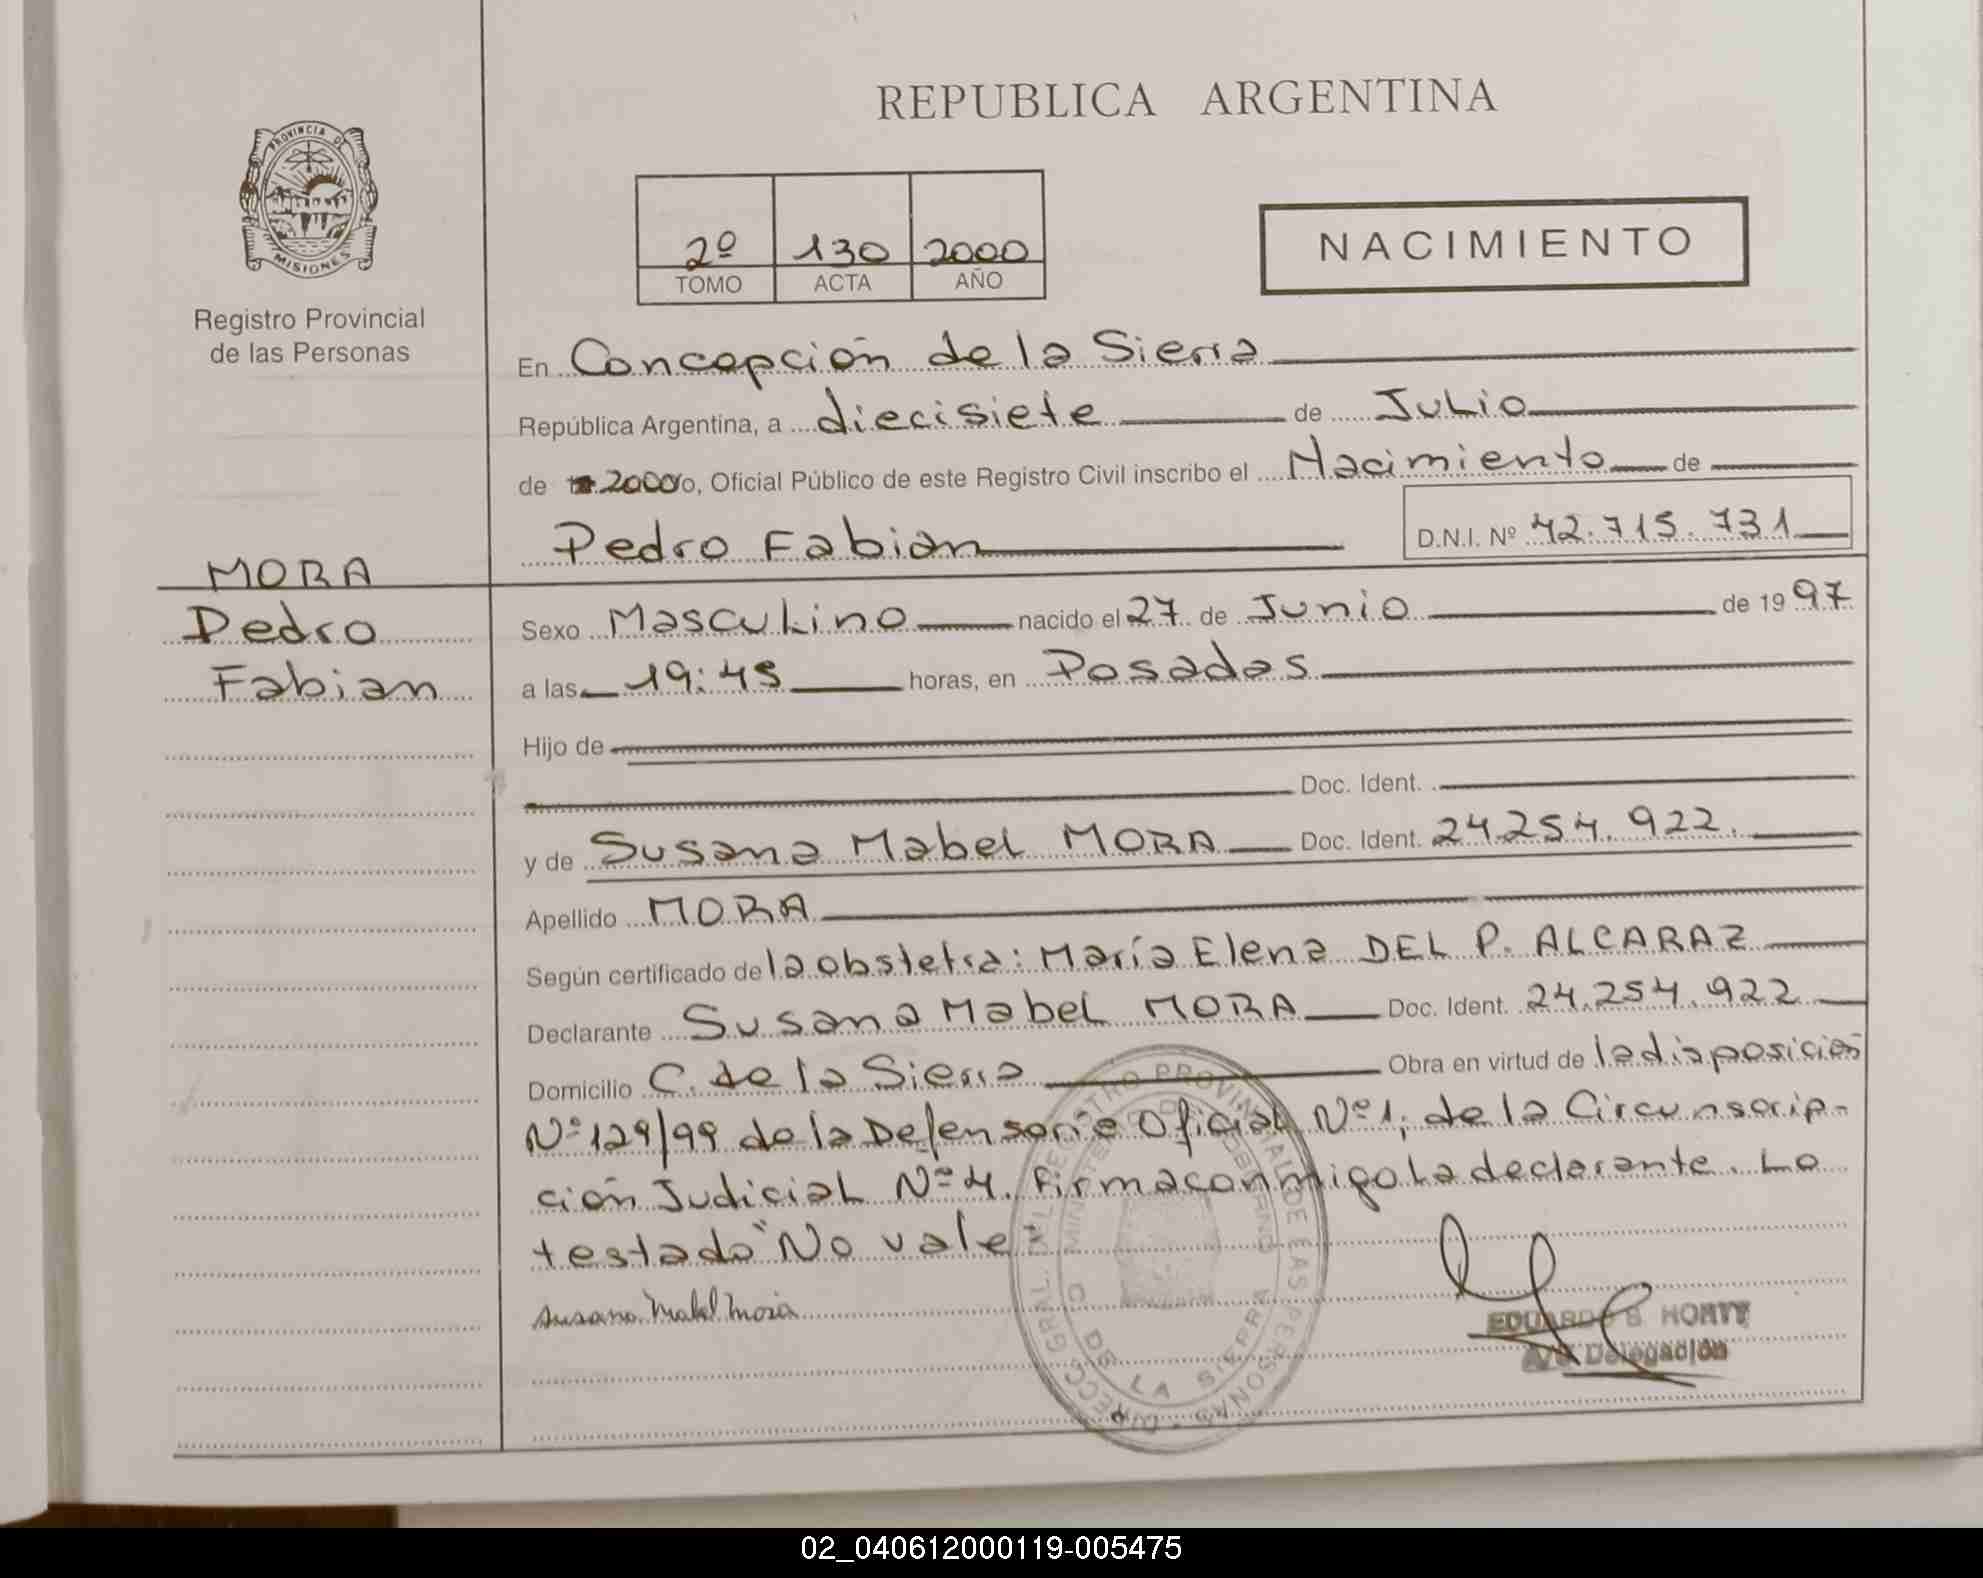 REPUBLICA ARGENTINA
PROVINCIA DE
MISIONES
Registro Provincial
de las Personas
2º 130 2000
TOMO ACTA AÑO
NACIMIENTO
En Concepción de la Sierra
República Argentina, a diecisiete de Julio
de 2000 yo, Oficial Público de este Registro Civil inscribo el Nacimiento de
Pedro Fabian D.N.I. Nº 42.715.731
MORA
Pedro
Fabian
Sexo Masculino nacido el 27 de Junio de 1997
a las 19:45 horas, en Posadas
Hijo de
Doc. Ident.
y de Susana Mabel MORA Doc. Ident. 24.254.922.
Apellido MORA
Según certificado de la obstetra: María Elena DEL P. ALCARAZ
Declarante Susana Mabel MORA Doc. Ident. 24.254.922
Domicilio C. de la Sierra Obra en virtud de la disposición
Nº 129/99 de la Defensoría Oficial Nº 1, de la Circunscrip-
ción Judicial Nº 4. Firma conmigo la declarante. Lo
testado "No vale"
Susana Mabel Mora
DIRECC. GRAL. DEL REGISTRO PROVINCIAL DE LAS PERSONAS
MINISTERIO DE GOBIERNO
C. DE LA SIERRA
EDUARDO B. MONTY
A/C Delegación
02_040612000119-005475